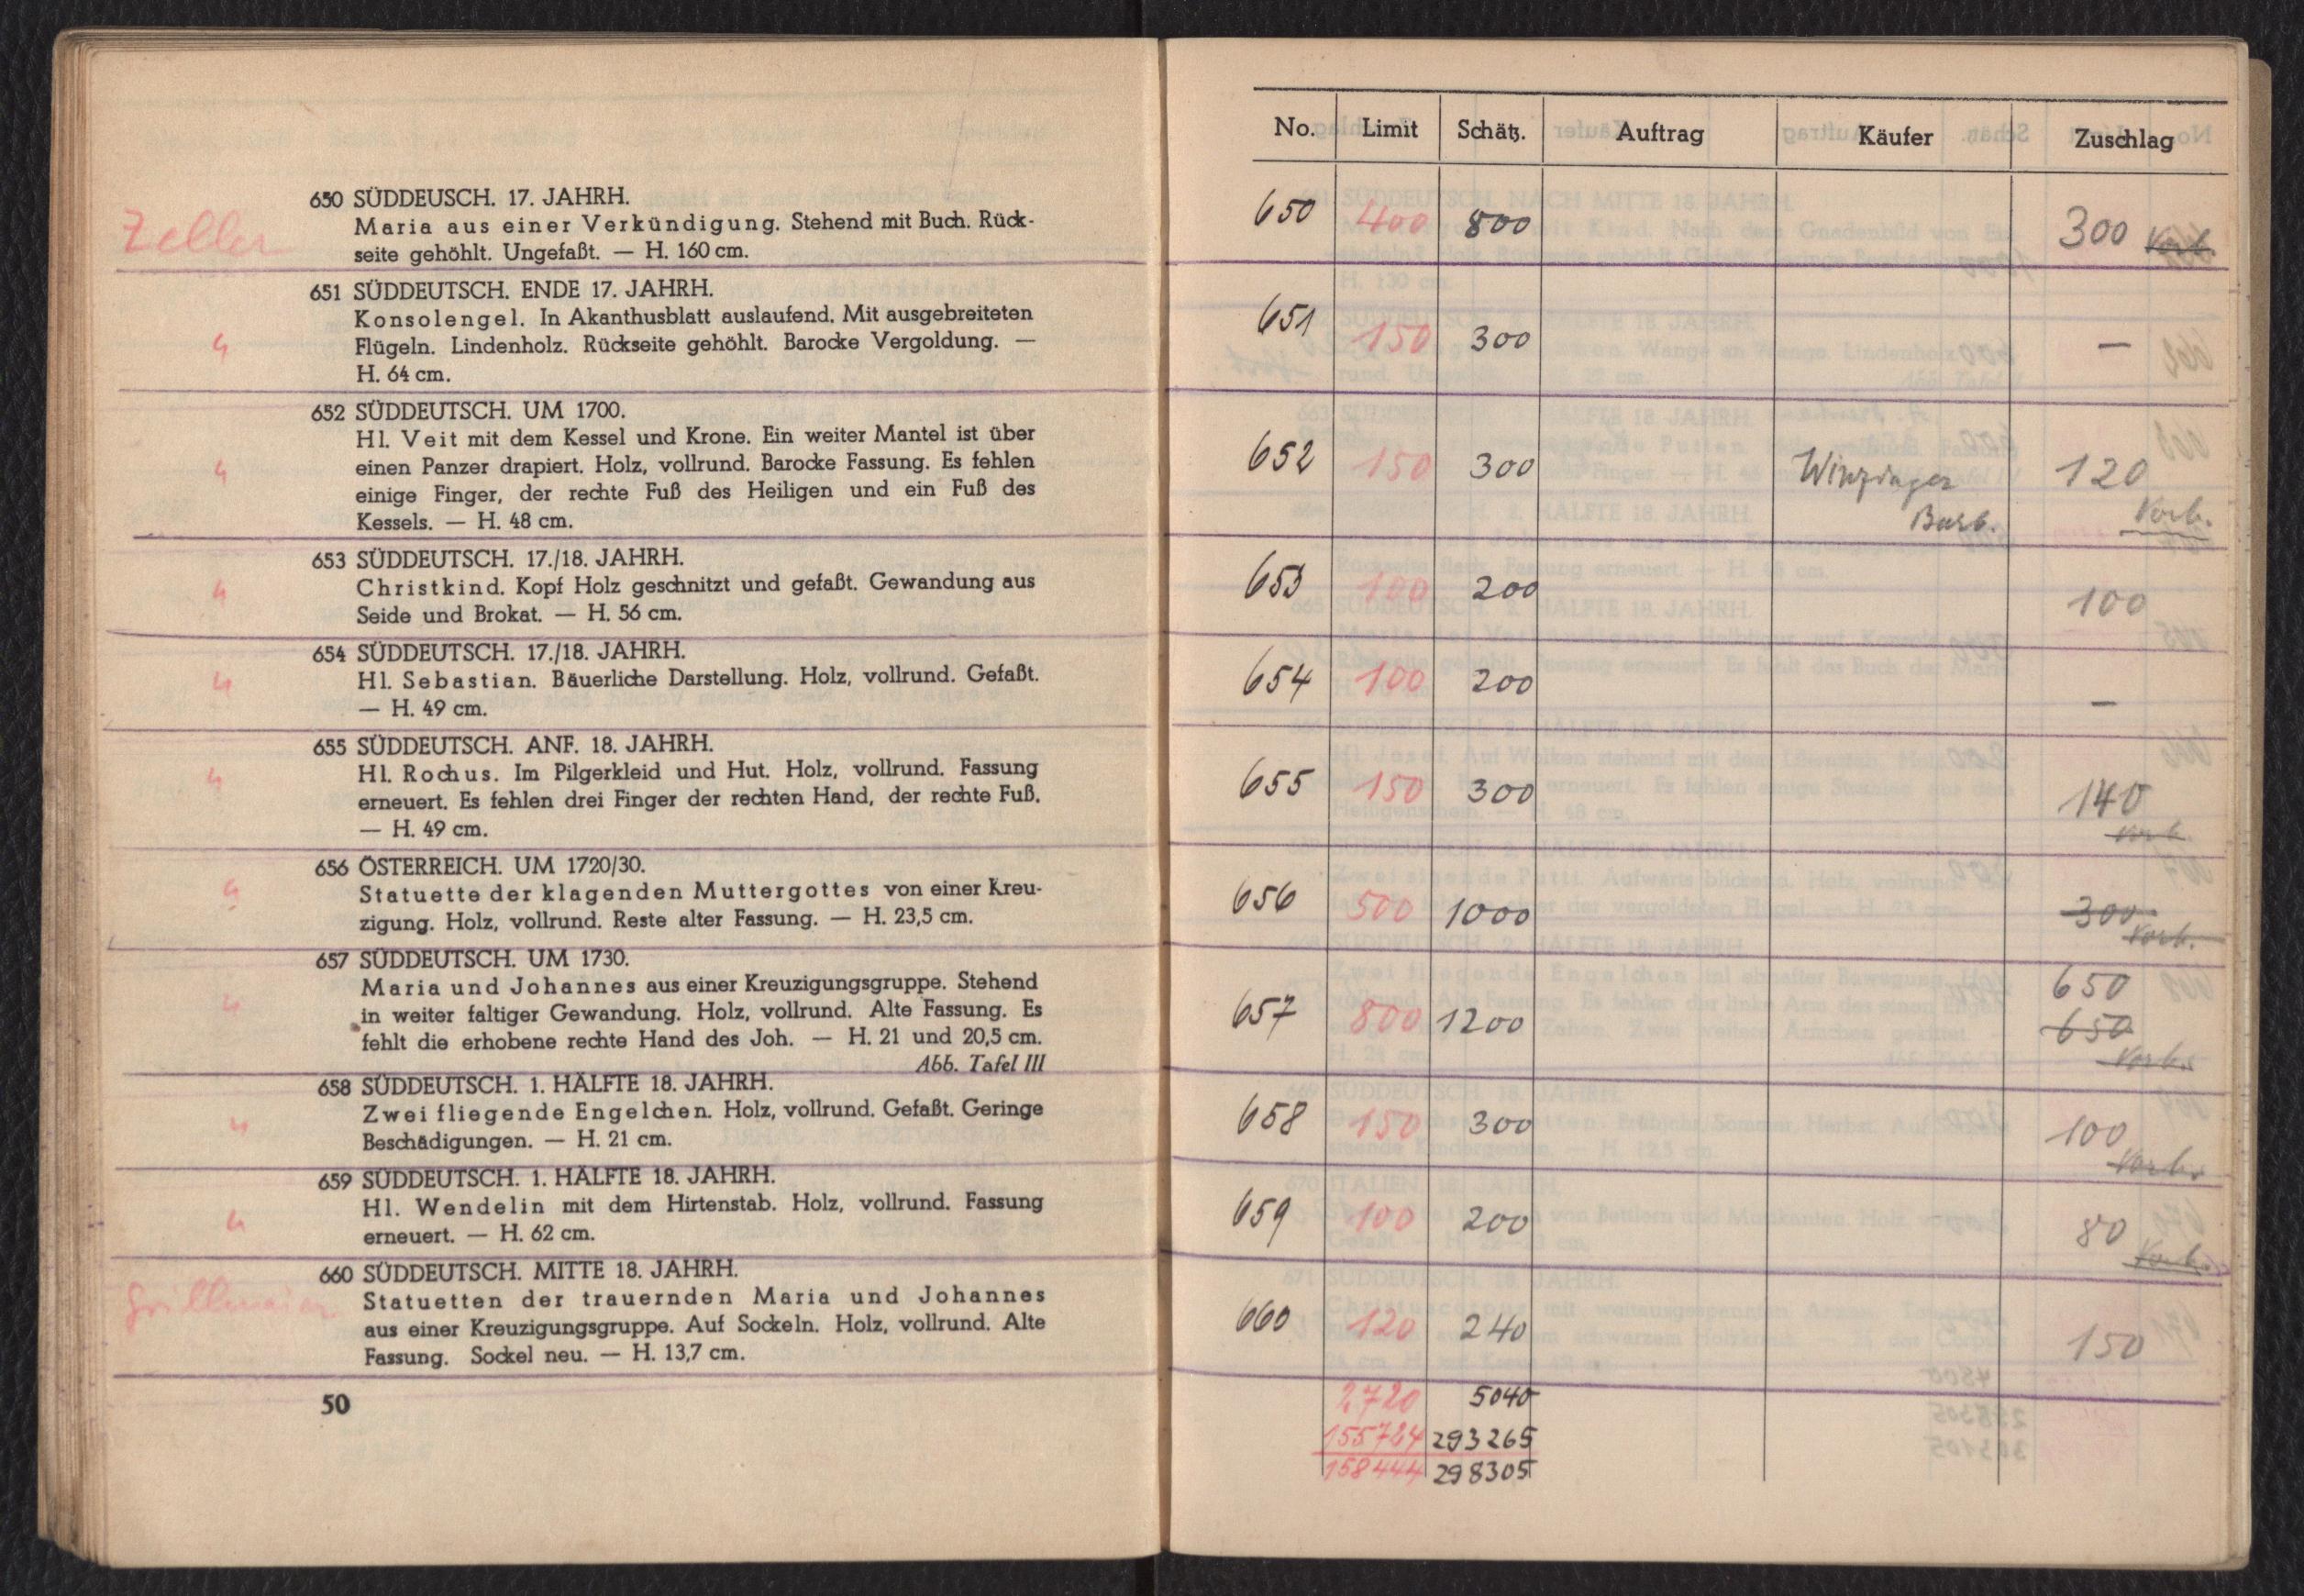 Zeller
650 SÜDDEUSCH. 17. JAHRH.
Maria aus einer Verkündigung. Stehend mit Buch. Rück-
seite gehöhlt. Ungefaßt. — H. 160 cm.
651 SÜDDEUTSCH. ENDE 17. JAHRH.
Konsolengel. In Akanthusblatt auslaufend. Mit ausgebreiteten
Flügeln. Lindenholz. Rückseite gehöhlt. Barocke Vergoldung. —
H. 64 cm.
652 SÜDDEUTSCH. UM 1700.
Hl. Veit mit dem Kessel und Krone. Ein weiter Mantel ist über
einen Panzer drapiert. Holz, vollrund. Barocke Fassung. Es fehlen
einige Finger, der rechte Fuß des Heiligen und ein Fuß des
Kessels. — H. 48 cm.
653 SÜDDEUTSCH. 17./18. JAHRH.
Christkind. Kopf Holz geschnitzt und gefaßt. Gewandung aus
Seide und Brokat. — H. 56 cm.
654 SÜDDEUTSCH. 17./18. JAHRH.
Hl. Sebastian. Bäuerliche Darstellung. Holz, vollrund. Gefaßt.
— H. 49 cm.
655 SÜDDEUTSCH. ANF. 18. JAHRH.
Hl. Rochus. Im Pilgerkleid und Hut. Holz, vollrund. Fassung
erneuert. Es fehlen drei Finger der rechten Hand, der rechte Fuß.
— H. 49 cm.
656 ÖSTERREICH. UM 1720/30.
Statuette der klagenden Muttergottes von einer Kreu-
zigung. Holz, vollrund. Reste alter Fassung. — H. 23,5 cm.
657 SÜDDEUTSCH. UM 1730.
Maria und Johannes aus einer Kreuzigungsgruppe. Stehend
in weiter faltiger Gewandung. Holz, vollrund. Alte Fassung. Es
fehlt die erhobene rechte Hand des Joh. — H. 21 und 20,5 cm.
Abb. Tafel III
658 SÜDDEUTSCH. 1. HÄLFTE 18. JAHRH.
Zwei fliegende Engelchen. Holz, vollrund. Gefaßt. Geringe
Beschädigungen. — H. 21 cm.
659 SÜDDEUTSCH. 1. HÄLFTE 18. JAHRH.
Hl. Wendelin mit dem Hirtenstab. Holz, vollrund. Fassung
erneuert. — H. 62 cm.
Grillmaier
660 SÜDDEUTSCH. MITTE 18. JAHRH.
Statuetten der trauernden Maria und Johannes
aus einer Kreuzigungsgruppe. Auf Sockeln. Holz, vollrund. Alte
Fassung. Sockel neu. — H. 13,7 cm.
50
No. Limit Schätz. Auftrag Käufer Zuschlag
650 400 800 300 Vorb.
651 150 300 —
652 150 300 Winzinger 120
Burb. Vorb.
653 100 200 100
654 100 200 —
655 150 300 140
Vorb.
656 500 1000 300
Vorb.
657 800 1200 650
650
Vorb.
658 150 300 100
Vorb.
659 100 200 80
Vorb.
660 120 240 150
2720 5040
155724 293265
158444 298305